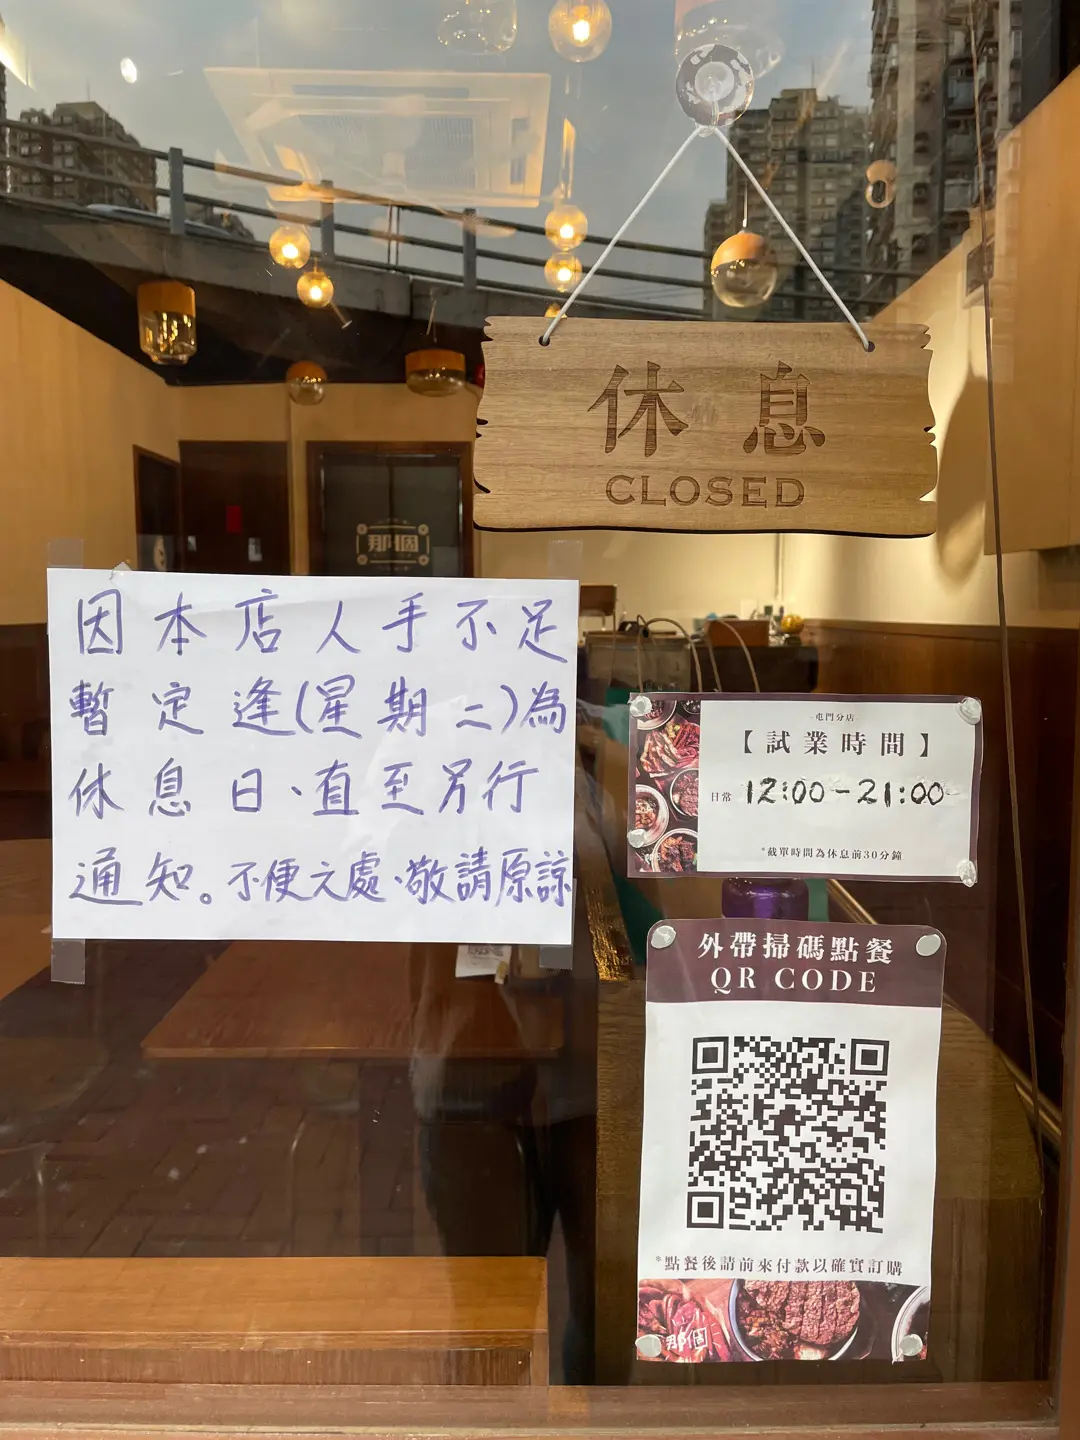 休息
CLOSED
那個
因本店人手不足
暫定逢(星期二)為
休息日、直至另行
通知。不便之處、敬請原諒
-屯門分店-
【試業時間】
日常 12:00-21:00
*截單時間為休息前30分鐘
外帶掃碼點餐
QR CODE
*點餐後請前來付款以確實訂購
那個